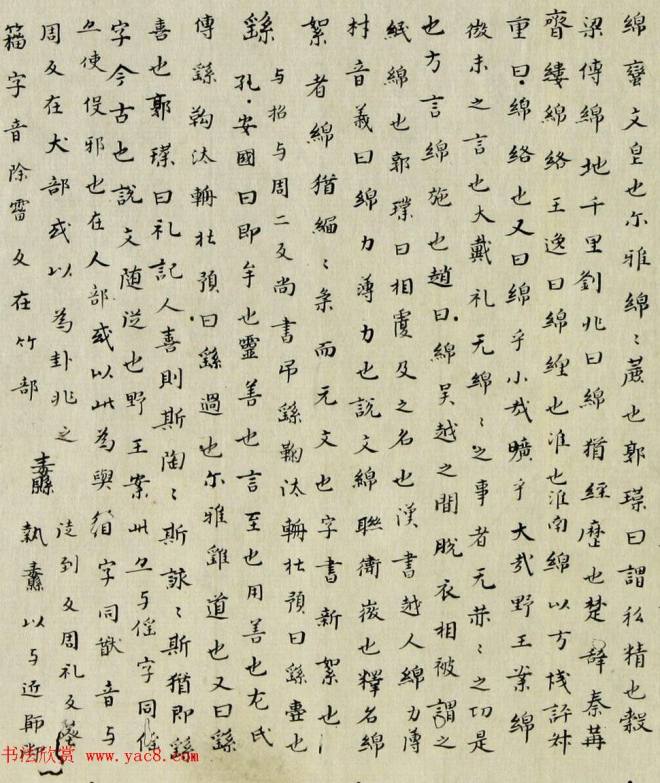 綿蠻文皃也尔雅綿〻蔗也郭璞曰謂私精也穀
梁傳綿地千里劉兆曰綿猶経歷也楚辞秦篝
齊縷綿絡王逸曰綿纏也淮也淮南綿以方城許
重曰綿絡也又曰綿乎小哉曠乎大哉野王案綿
微末之言也大戴礼无綿〻之事者无赤〻之功是
也方言綿施也趙曰綿吴越之間脱衣相被謂之
緍綿也郭璞曰相覆及之名也漢書越人綿力薄
材音義曰綿力薄力也說文綿聯微也釋名綿
絮者綿猶緬〻柔而无文也字書新絮也
繇 与招与周二反尚書吊繇
孔安國曰即也靈善也言至也用善也尤氏
傳繇鞫汰輈杜預曰繇過也尔雅繇道也又曰繇
喜也郭璞曰礼記人喜則斯陶〻斯詠〻斯猶即繇
字今古也說文随従也野王案此亦与傜字同
亦使役邪也在人部或以此為與字同猷音与
周反在犬部或以為卦兆之
籀字音除霤反在竹部
徒到反周礼
執纛以与近師
书法欣赏www.yac8.com